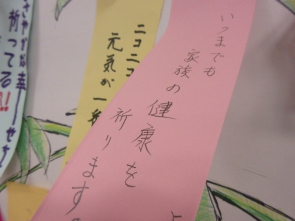 いつまでも
家族の健康を
祈ります。
ニコニコ
元気が一番
祈ってる!!